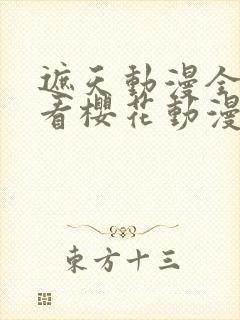 遮天動漫全
看櫻花動漫
東方十三